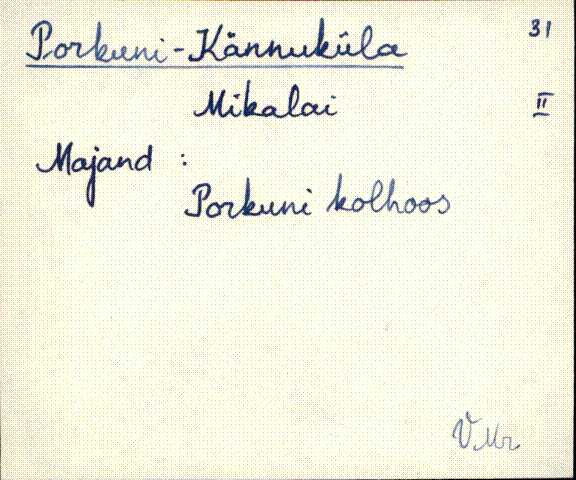 Porkuni-Kännuküla 31
Mikalai II
Majand :
Porkuni kolhoos
VMr